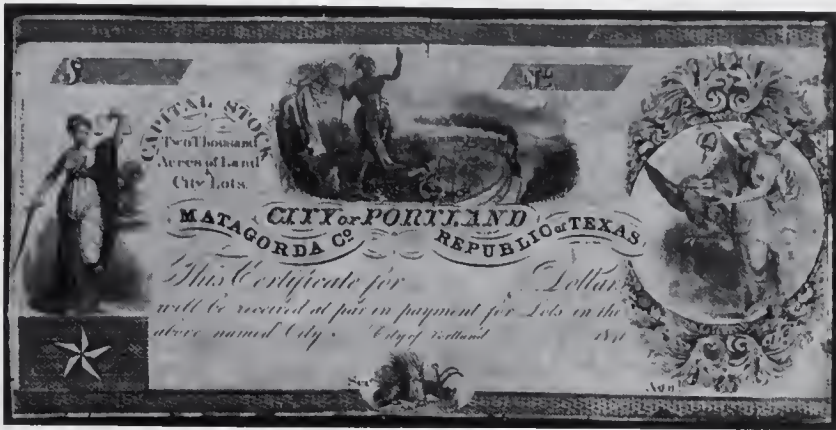 $
CAPITAL STOCK
Two Thousand
Acres of Land
City Lots.
CITY OF PORTLAND
MATAGORDA Co. REPUBLIC OF TEXAS
This Certificate for Dollars
will be received at par in payment for Lots in the
above named City. City of Portland 184
Sec